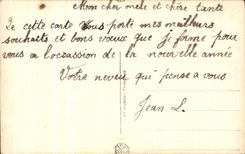 Mon cher oncle et chère tante
Que cette carte vous porte mes meilleurs
souhaits et bons voeux que je forme pour
vous a l'occassion de la nouvelle année
Votre neveu qui pense a vous
Jean L.